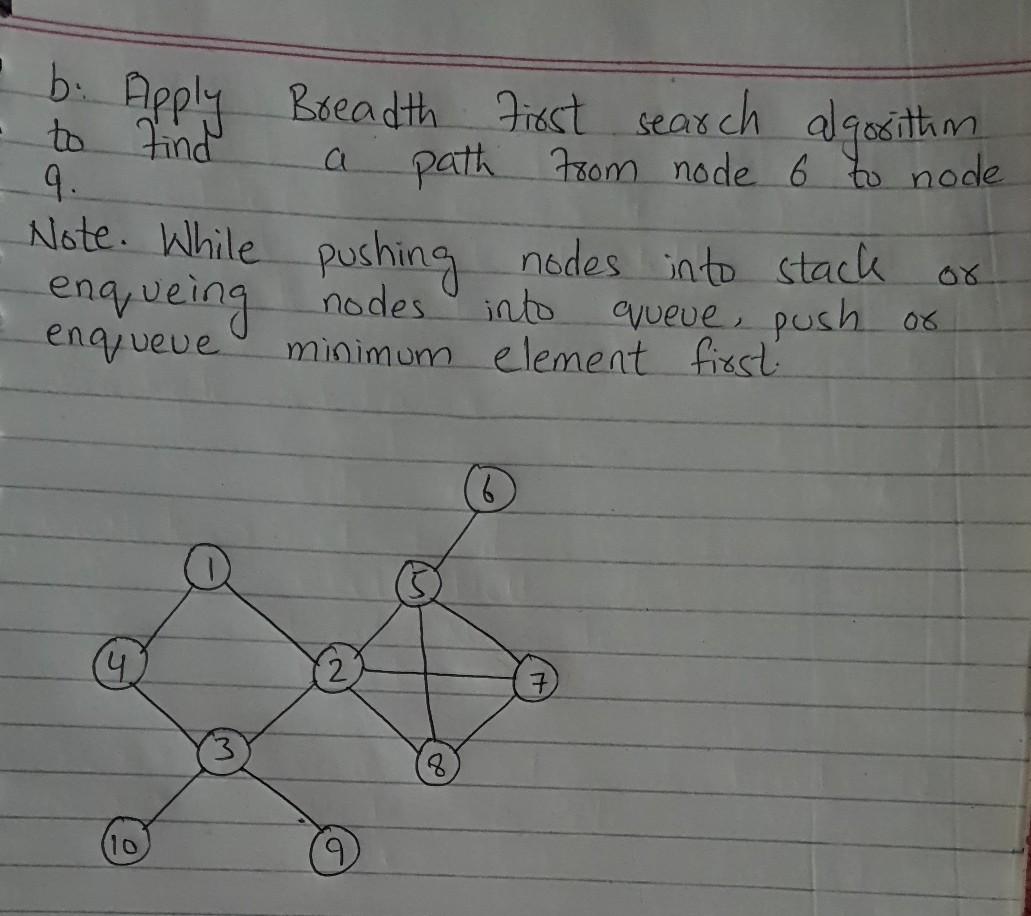 b: Apply Breadth First search algorithm
to find a path from node 6 to node
9.
Note. While pushing nodes into stack or
enqueing nodes into queue, push or
enqueue minimum element first.
6
1
5
4
2
7
3
8
10
9